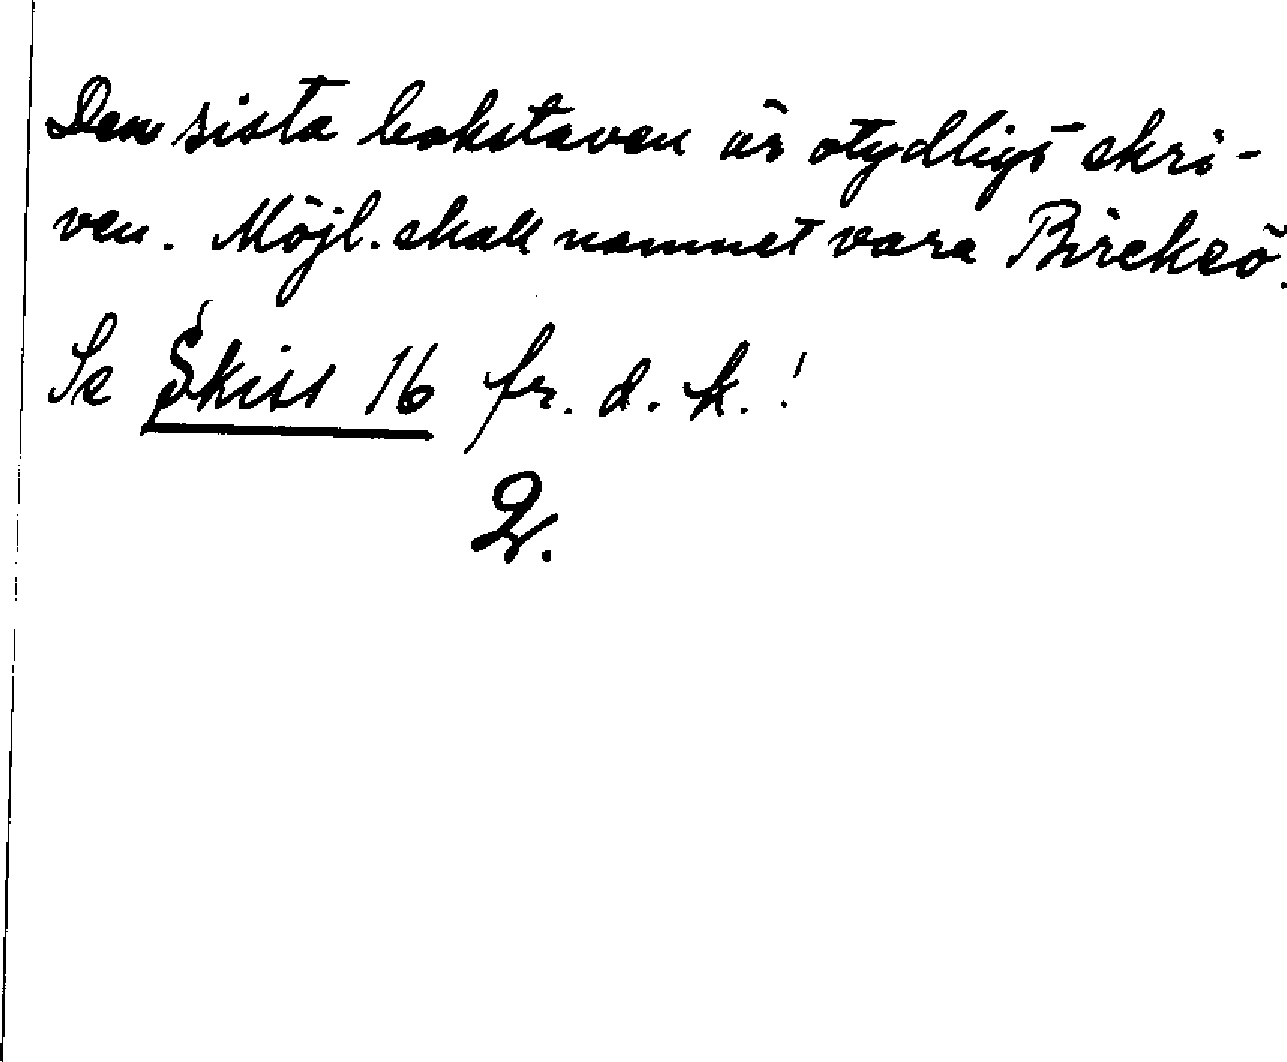 Den sista bokstaven är otydligt skri-
ven. Möjl. skall namnet vara Birekeö.
Se Skiss 16 fr. d. k.!
2.